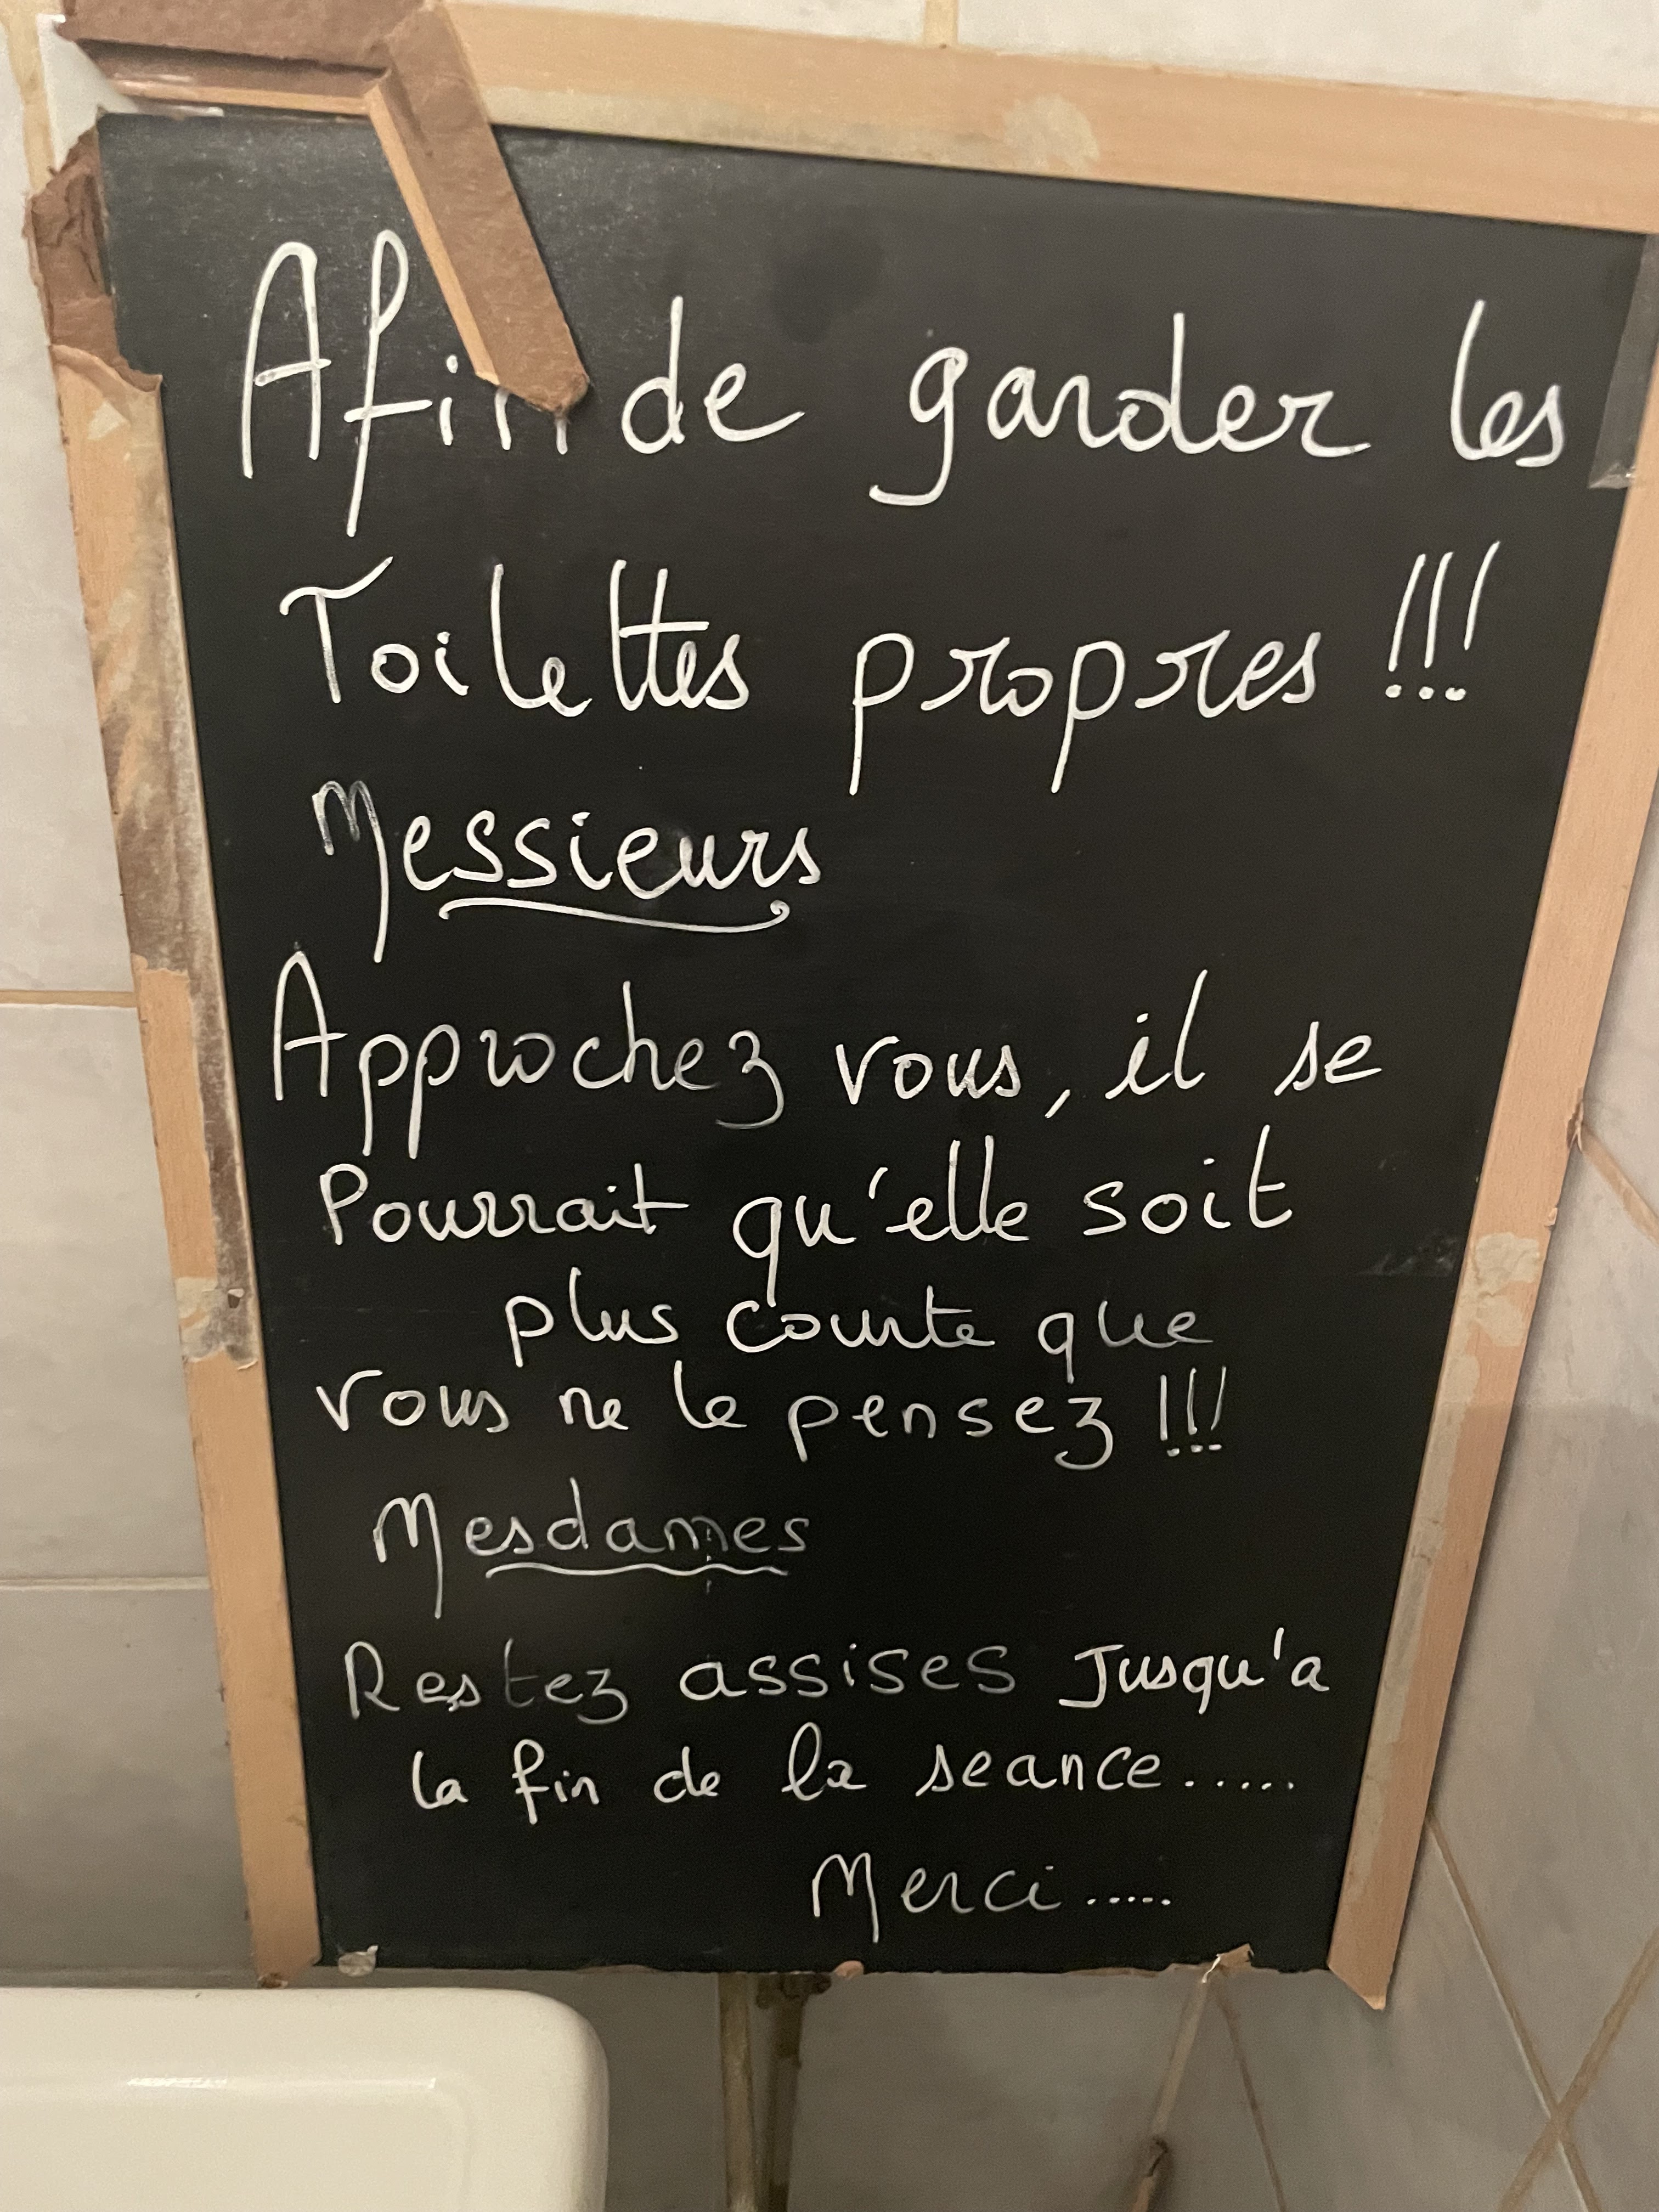 Afin de garder les
Toilettes propres !!!
Messieurs
Approchez vous, il se
Pourrait qu'elle soit
plus courte que
vous ne le pensez !!!
Mesdames
Restez assises Jusqu'a
la fin de la seance.....
Merci.....